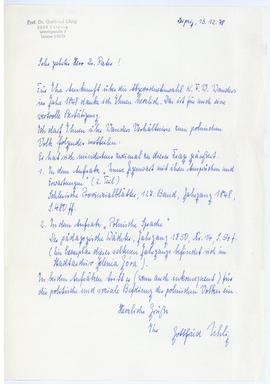 Prof. Dr. Gottfried Uhlig
Leipzig, 13.12.78
Sehr geehrter Herr Dr.
Für Ihre Auskunft über die Abgeordnetenwahl K. F. W. Wanders
im Jahre 1848 danke ich Ihnen herzlich. Das ist für mich eine
wertvolle Bestätigung.
Ich darf Ihnen über Wanders Verhältnis zum polnischen
Volk folgendes mitteilen:
Es hat sich mindestens zweimal zu dieser Frage geäußert.
1. In dem Aufsatz „Innere Gegenwart mit ihren Ansprüchen und
Erwartungen" (2. Teil)
Schlesische Provinzialblätter, 127. Band, Jahrgang 1848,
S. 480 ff
2. In dem Aufsatz „Polnische Sprache"
Der pädagogische Wächter, Jahrgang 1850, Nr. 14, S. 54 f.
(Ein Exemplar dieses seltenen Jahrgangs befindet sich im
Stadtarchiv Jelenia Gora.)
In beiden Aufsätzen tritt er (wenn auch inkonsequent) für
die politische und soziale Befreiung des polnischen Volkes ein
Herzliche Grüße
Ihr
Gottfried Uhlig